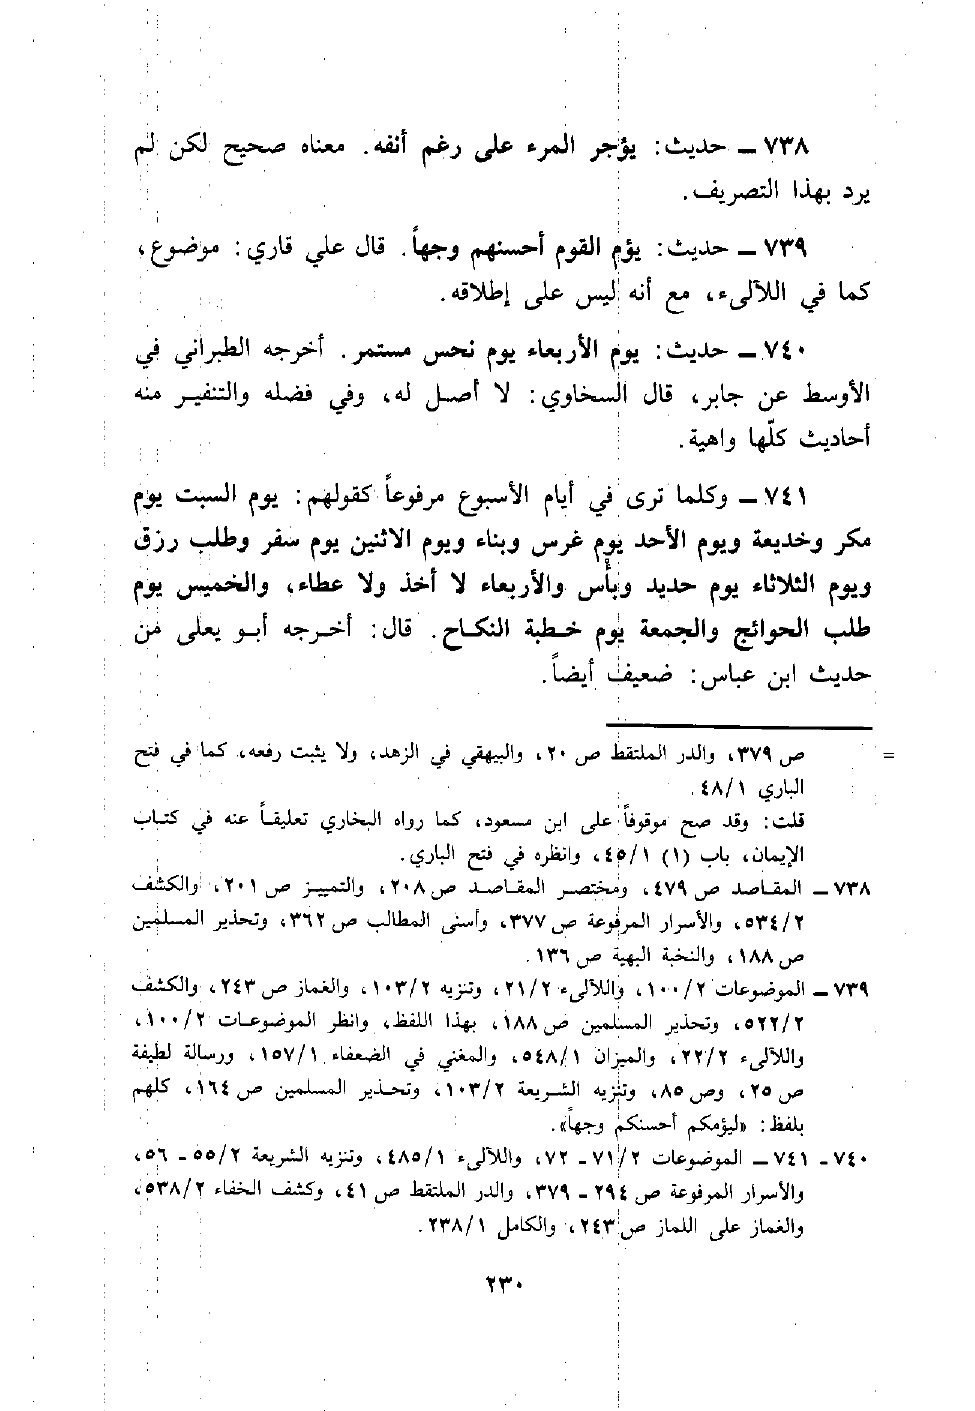 ٧٣٨ ــ حديث: يؤجر المرء على رغم أنفه. معناه صحيح لكن لم
يرد بهذا التصريف.
٧٣٩ ــ حديث: يؤم القوم أحسنهم وجهاً. قال علي قاري: موضوع،
كما في اللآلىء، مع أنه ليس على إطلاقه.
٧٤٠ ــ حديث: يوم الأربعاء يوم نحس مستمر. أخرجه الطبراني في
الأوسط عن جابر، قال السخاوي: لا أصل له، وفي فضله والتنفير منه
أحاديث كلّها واهية.
٧٤١ ــ وكلما ترى في أيام الأسبوع مرفوعاً كقولهم: يوم السبت يوم
مكر وخديعة ويوم الأحد يوم غرس وبناء ويوم الاثنين يوم سفر وطلب رزق
ويوم الثلاثاء يوم حديد وبأس والأربعاء لا أخذ ولا عطاء، والخميس يوم
طلب الحوائج والجمعة يوم خطبة النكاح. قال: أخرجه أبو يعلى من
حديث ابن عباس: ضعيف أيضاً.
= ص ٣٧٩، والدر الملتقط ص ٢٠، والبيهقي في الزهد، ولا يثبت رفعه، كما في فتح
الباري ٤٨/١.
قلت: وقد صح موقوفاً على ابن مسعود، كما رواه البخاري تعليقاً عنه في كتاب
الإيمان، باب (١) ٤٥/١، وانظره في فتح الباري.
٧٣٨ ــ المقاصد ص ٤٧٩، ومختصر المقاصد ص ٢٠٨، والتمييز ص ٢٠١، والكشف
٥٣٤/٢، والأسرار المرفوعة ص ٣٧٧، وأسنى المطالب ص ٣٦٢، وتحذير المسلمين
ص ١٨٨، والنخبة البهية ص ١٣٦.
٧٣٩ ــ الموضوعات ١٠٠/٢، واللآلىء ٢١/٢، وتنزيه ١٠٣/٢، والغماز ص ٢٤٣، والكشف
٥٢٢/٢، وتحذير المسلمين ص ١٨٨، بهذا اللفظ، وانظر الموضوعات ١٠٠/٢،
واللآلىء ٢٢/٢، والميزان ٥٤٨/١، والمغني في الضعفاء ١٥٧/١، ورسالة لطيفة
ص ٢٥، وص ٨٥، وتنزيه الشريعة ١٠٣/٢، وتحذير المسلمين ص ١٦٤، كلهم
بلفظ: «ليؤمكم أحسنكم وجهاً».
٧٤٠ - ٧٤١ ــ الموضوعات ٧١/٢ - ٧٢، واللآلىء ٤٨٥/١، وتنزيه الشريعة ٥٥/٢ - ٥٦،
والأسرار المرفوعة ص ٢٩٤ - ٣٧٩، والدر الملتقط ص ٤١، وكشف الخفاء ٥٣٨/٢،
والغماز على اللماز ص ٢٤٣، والكامل ٢٣٨/١.
٢٣٠